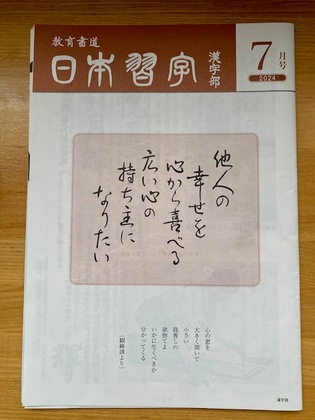 教育書道
日本習字
漢字部
7
月号
2024
他人の
幸せを
心から喜べる
広い心の
持ち主に
なりたい
心の窓を
大きく開いて
小さい
我善しの
欲捨てよ
いかに生くべきか
分かつてくる
(観峰訓より)
漢字部